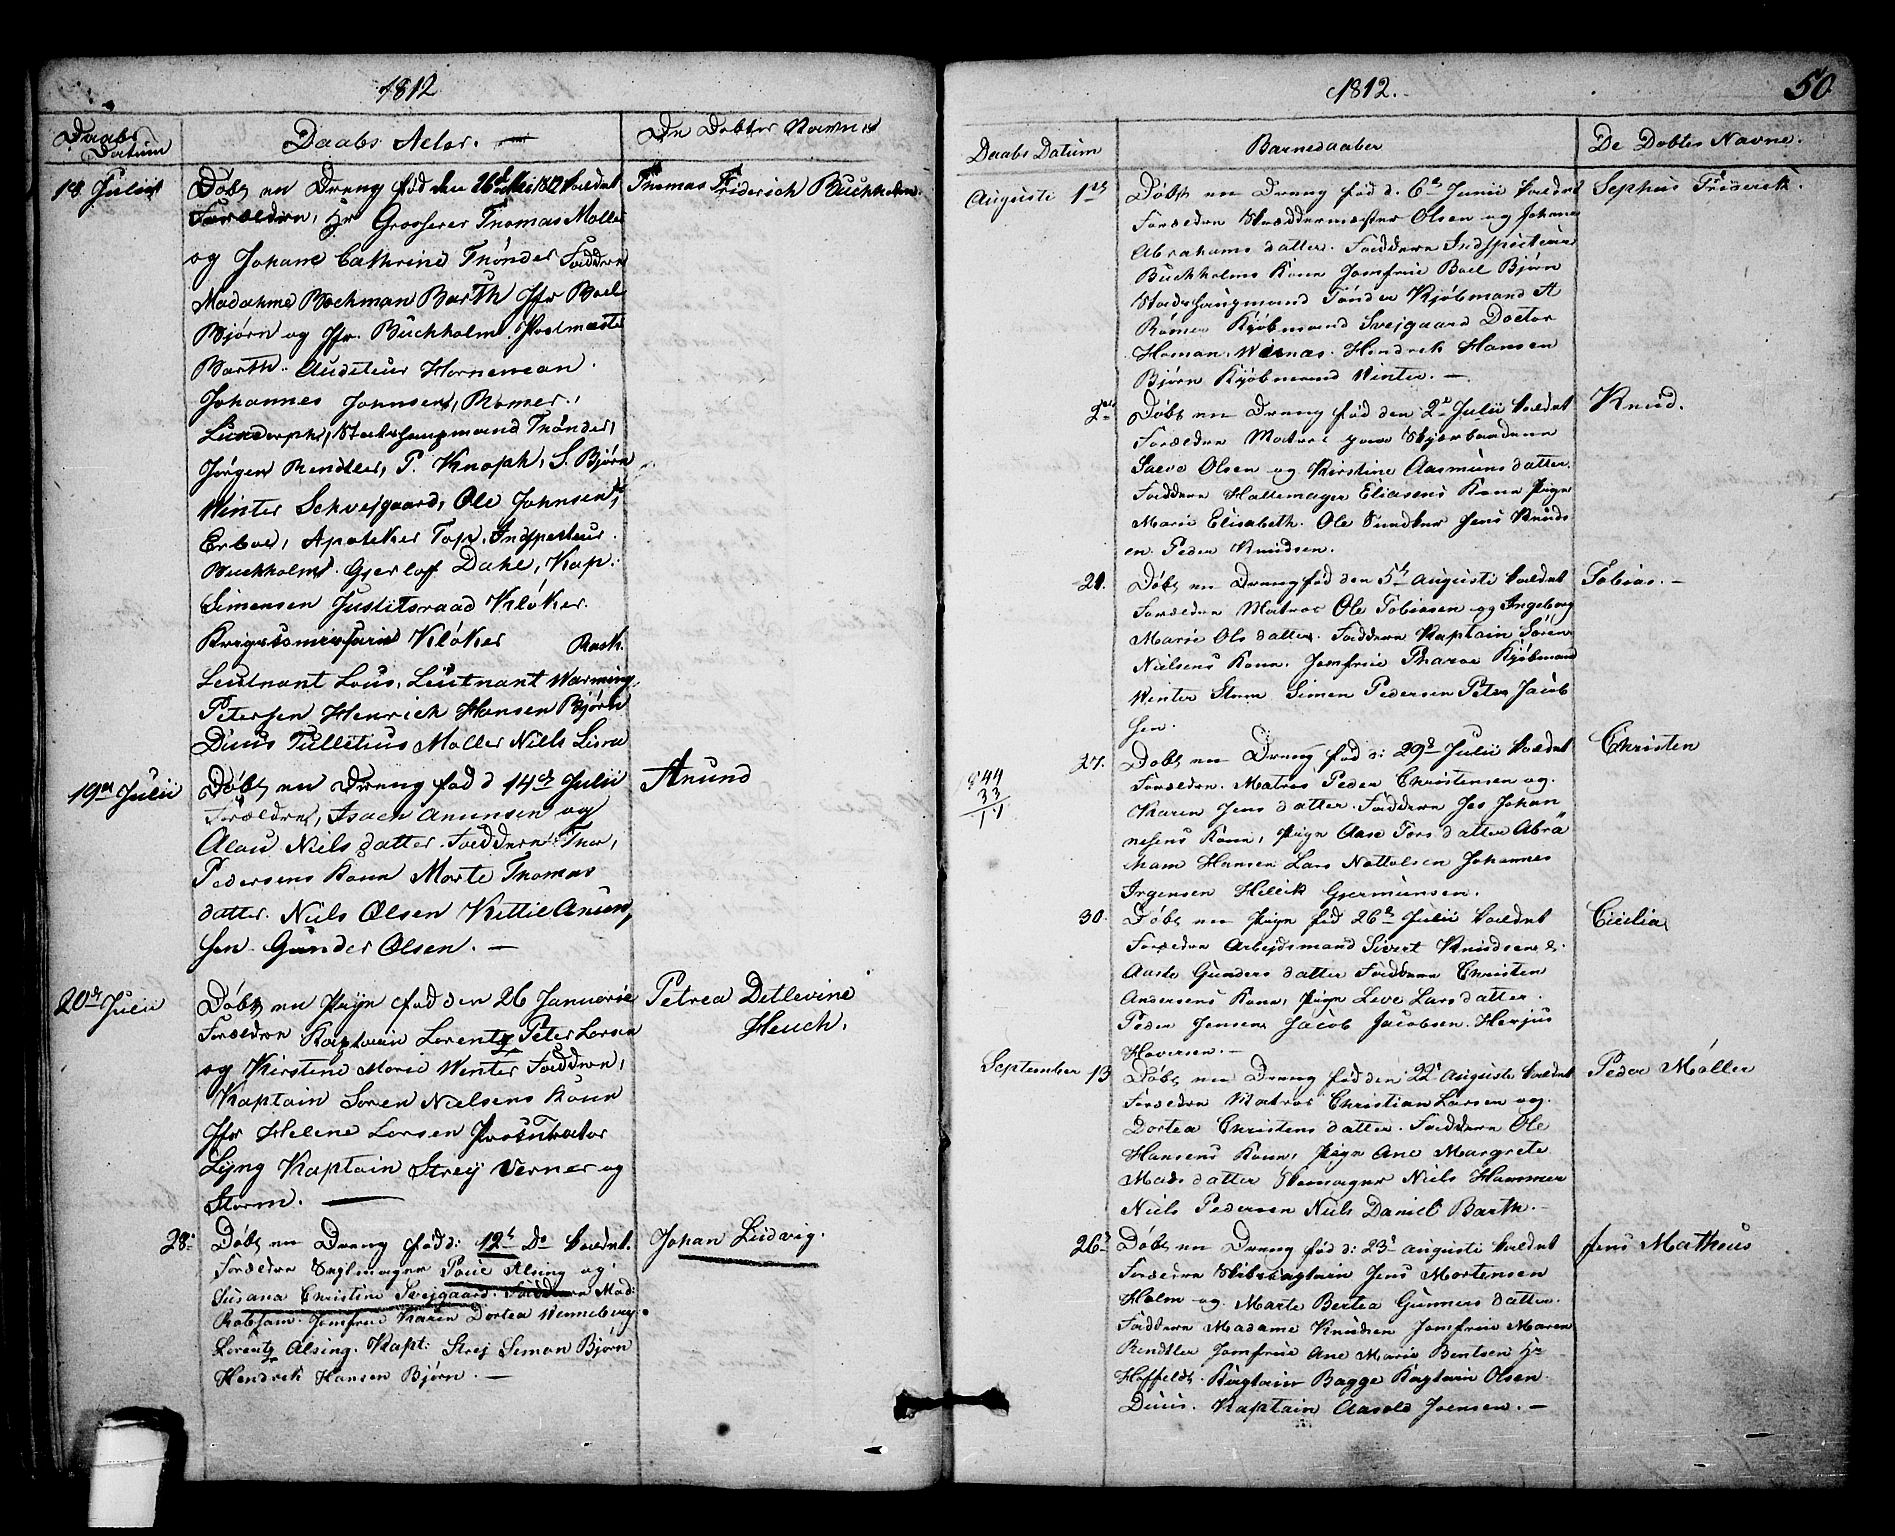 1812
Daabs Datum
Daabs Acter. —
De Døbtes Navne
18 Julii
Døbt en Dreng fød den 26de Mai 1812 kaldet
Forældre, Hr Grosserer Thomas Møller
og Johane Cathrine Thønder Faddere
Madahme Bochman Barth Jfr Boel
Bjørn og Jfr. Buchholm. Postmester
Barth. Auditeur Horneman.
Johannes Johnsen, Rømer,
Lundorph, Stadshaugmand Thønder,
Jørgen Rendtler, P. Knoph, S. Bjørn
Winter Schvejgaard, Ole Johnsen,
Erboe, Apoteker Top, Indspecteur
Buchholm. Gjerlof Dahl, Kap:
Simensen Justitsraad Kløker.
Krigscomissair Kløker Rask.
Leutnant Lous, Leutnant Warming,
Petersen Henrich Hansen Bjørn
Dius Tullitius Møller Niels
Thomas Friderich Buchholm
19de Julii
Døbt en Dreng fød d 14de Julii
Forældre, Isach Anunsen og
Niels datter. Faddere Thor,
Pedersens Kone Marte Thomas
datter. Niels Olsen Kittil Anun,
sen. Gunder Olsen. —
Anund
20de Julii
Døbt en Pige fød den 26 Januarie
Forældre Kaptain Lorentz Peter Larsen
og Kirstine Marie Winter Faddere,
Kaptain Søren Nielsens Kone
Jfr Helene Larsen Procurator
Lyng Kaptain Strej Verner og
Storm. —
Petrea Detlevine
Heuch.
28.
Døbt en Dreng fød d: 12te Do kaldet.
Forældre Sejlmager Poul Alsing og
Susana Christine Svejgaard. Faddere Mad:
Robsam. Jomfrue Karen Dortea Wenneberg
Lorentz Alsing. Kapt: Strej Simon Bjørn
Hendrik Hansen Bjørn. —
Johan Ludvig.
1812.
50
Daabs Datum
Barnedaaber
De Døbtes Navne.
Augusti 1ste
Døbt en Dreng fød d. 6te Junii kaldet
Forældre Skræddermester Olsen og Johane
Abrahams datter. Faddere Indspecteur
Buchholms Kone Jomfrue Boel Bjørn
Stadshaugmand Tønder Kjøbmand A
Rømer Kjøbmand Svejgaard Doctor
Homan. Wernas. Hendrik Hansen
Bjørn Kjøbmand Winter. —
Sephus Friderik.
2den
Døbt en Dreng fød den 2de Julii kaldet
Forældre Matros paa Skjærbaadene
Olsen og Kirstine Aasmuns datter.
Faddere Hattemager Eliasens Kone Pige
Marie Elisabeth. Ole Jens Knuds
en. Peder Knudsen.
Knud.
21.
Døbt en Dreng fød den 5te Augusti kaldet
Forældre Matros Ole Tobiasen og Ingeborg
Marie Ols datter. Faddere Kaptain Søren
Nielsens Kone. Jomfrue Kjøbmand
Winter Simen Pedersen Peter Jacob
sen.
Tobias. —
27.
Døbt en Dreng fød d: 29de Julii kaldet
Forældre. Matros Peder Christensen og
Karen Jens datter. Faddere Jes Johan
nesens Kone, Pige Aase Tors datter Abra
ham Hansen Lars Nottolsen Johannes
Irgensen Hellik Gjermunsen.
Christen
844
33
11
30.
Døbt en Pige fød 26de Julii kaldet
Forældre Arbejdsmand Sivert Knudsen &
Aaste Gunders datter Faddere Christen
Andersens Kone, Pige Leve Lars datter.
Peder Jensen Jacob Jacobsen. Herjus
Haversen. —
Cicilia
September 13
Døbt en Dreng fød den 22de Auguste kaldet
Forældre Matros Christian Larsen og.
Dortea Christens datter. Faddere Ole
Hansens Kone, Pige Ane Margrete
Mads datter Skomager Niels Hammer
Niels Pedersen Niels Daniel Barth. —
Peder Møller
26de
Døbt en Dreng fød d: 23de Augusti kaldet
Forældre Skibskaptain Jens Mortensen
Holm og Marte Bertea Gunners datter.
Faddere Madame Knudsen Jomfrue Maren
Rendtler Jomfrue Ane Marie Bentsen Hr
Hoffeldt. Kaptain Bagge Kaptain Olsen.
Dius. Kaptain Aasold Joensen. —
Jens Matheus